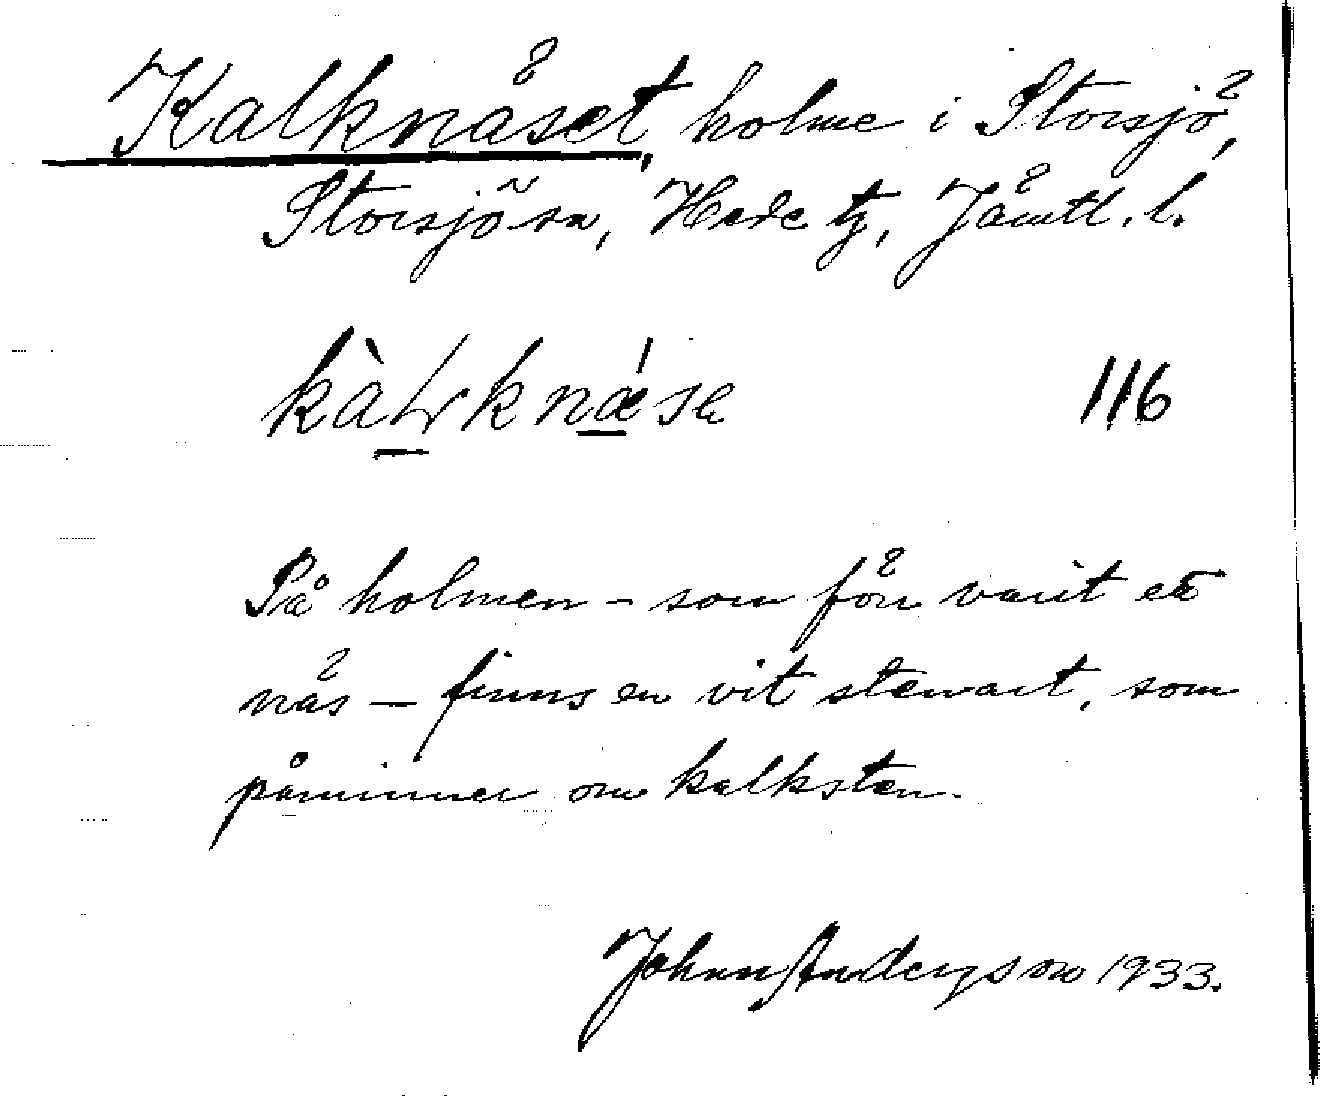 Kalknäset, holme i Storsjö,
Storsjö sn, Hede tg, Jämtl. l.
kàḷknǽse
116
På holmen – som förr varit ett
näs – finns en vit stenart, som
påminner om kalksten.
Johan Andersson 1933.